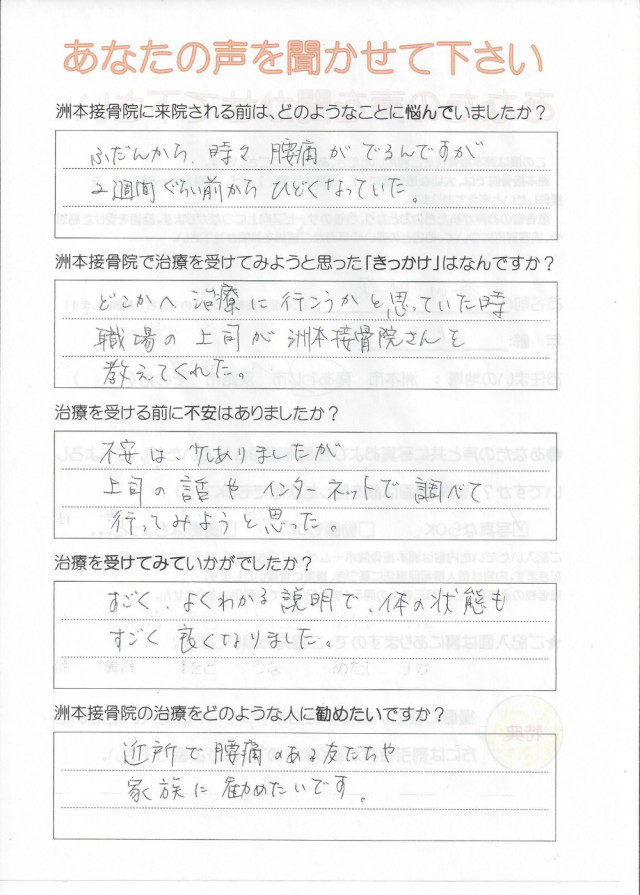 あなたの声を聞かせて下さい
洲本接骨院に来院される前は、どのようなことに悩んでいましたか？
ふだんから、時々 腰痛がでるんですが
2週間ぐらい前から ひどくなっていた。
洲本接骨院で治療を受けてみようと思った「きっかけ」はなんですか？
どこかへ 治療に行こうかと思っていた時
職場の 上司が 洲本接骨院さんを
教えてくれた。
治療を受ける前に不安はありましたか？
不安は 少しありましたが
上司の 話や インターネットで 調べて
行ってみようと思った。
治療を受けてみていかがでしたか？
すごく、よくわかる 説明で、体の状態も
すごく 良くなりました。
洲本接骨院の治療をどのような人に勧めたいですか？
近所で 腰痛のある友だちや
家族に 勧めたいです。